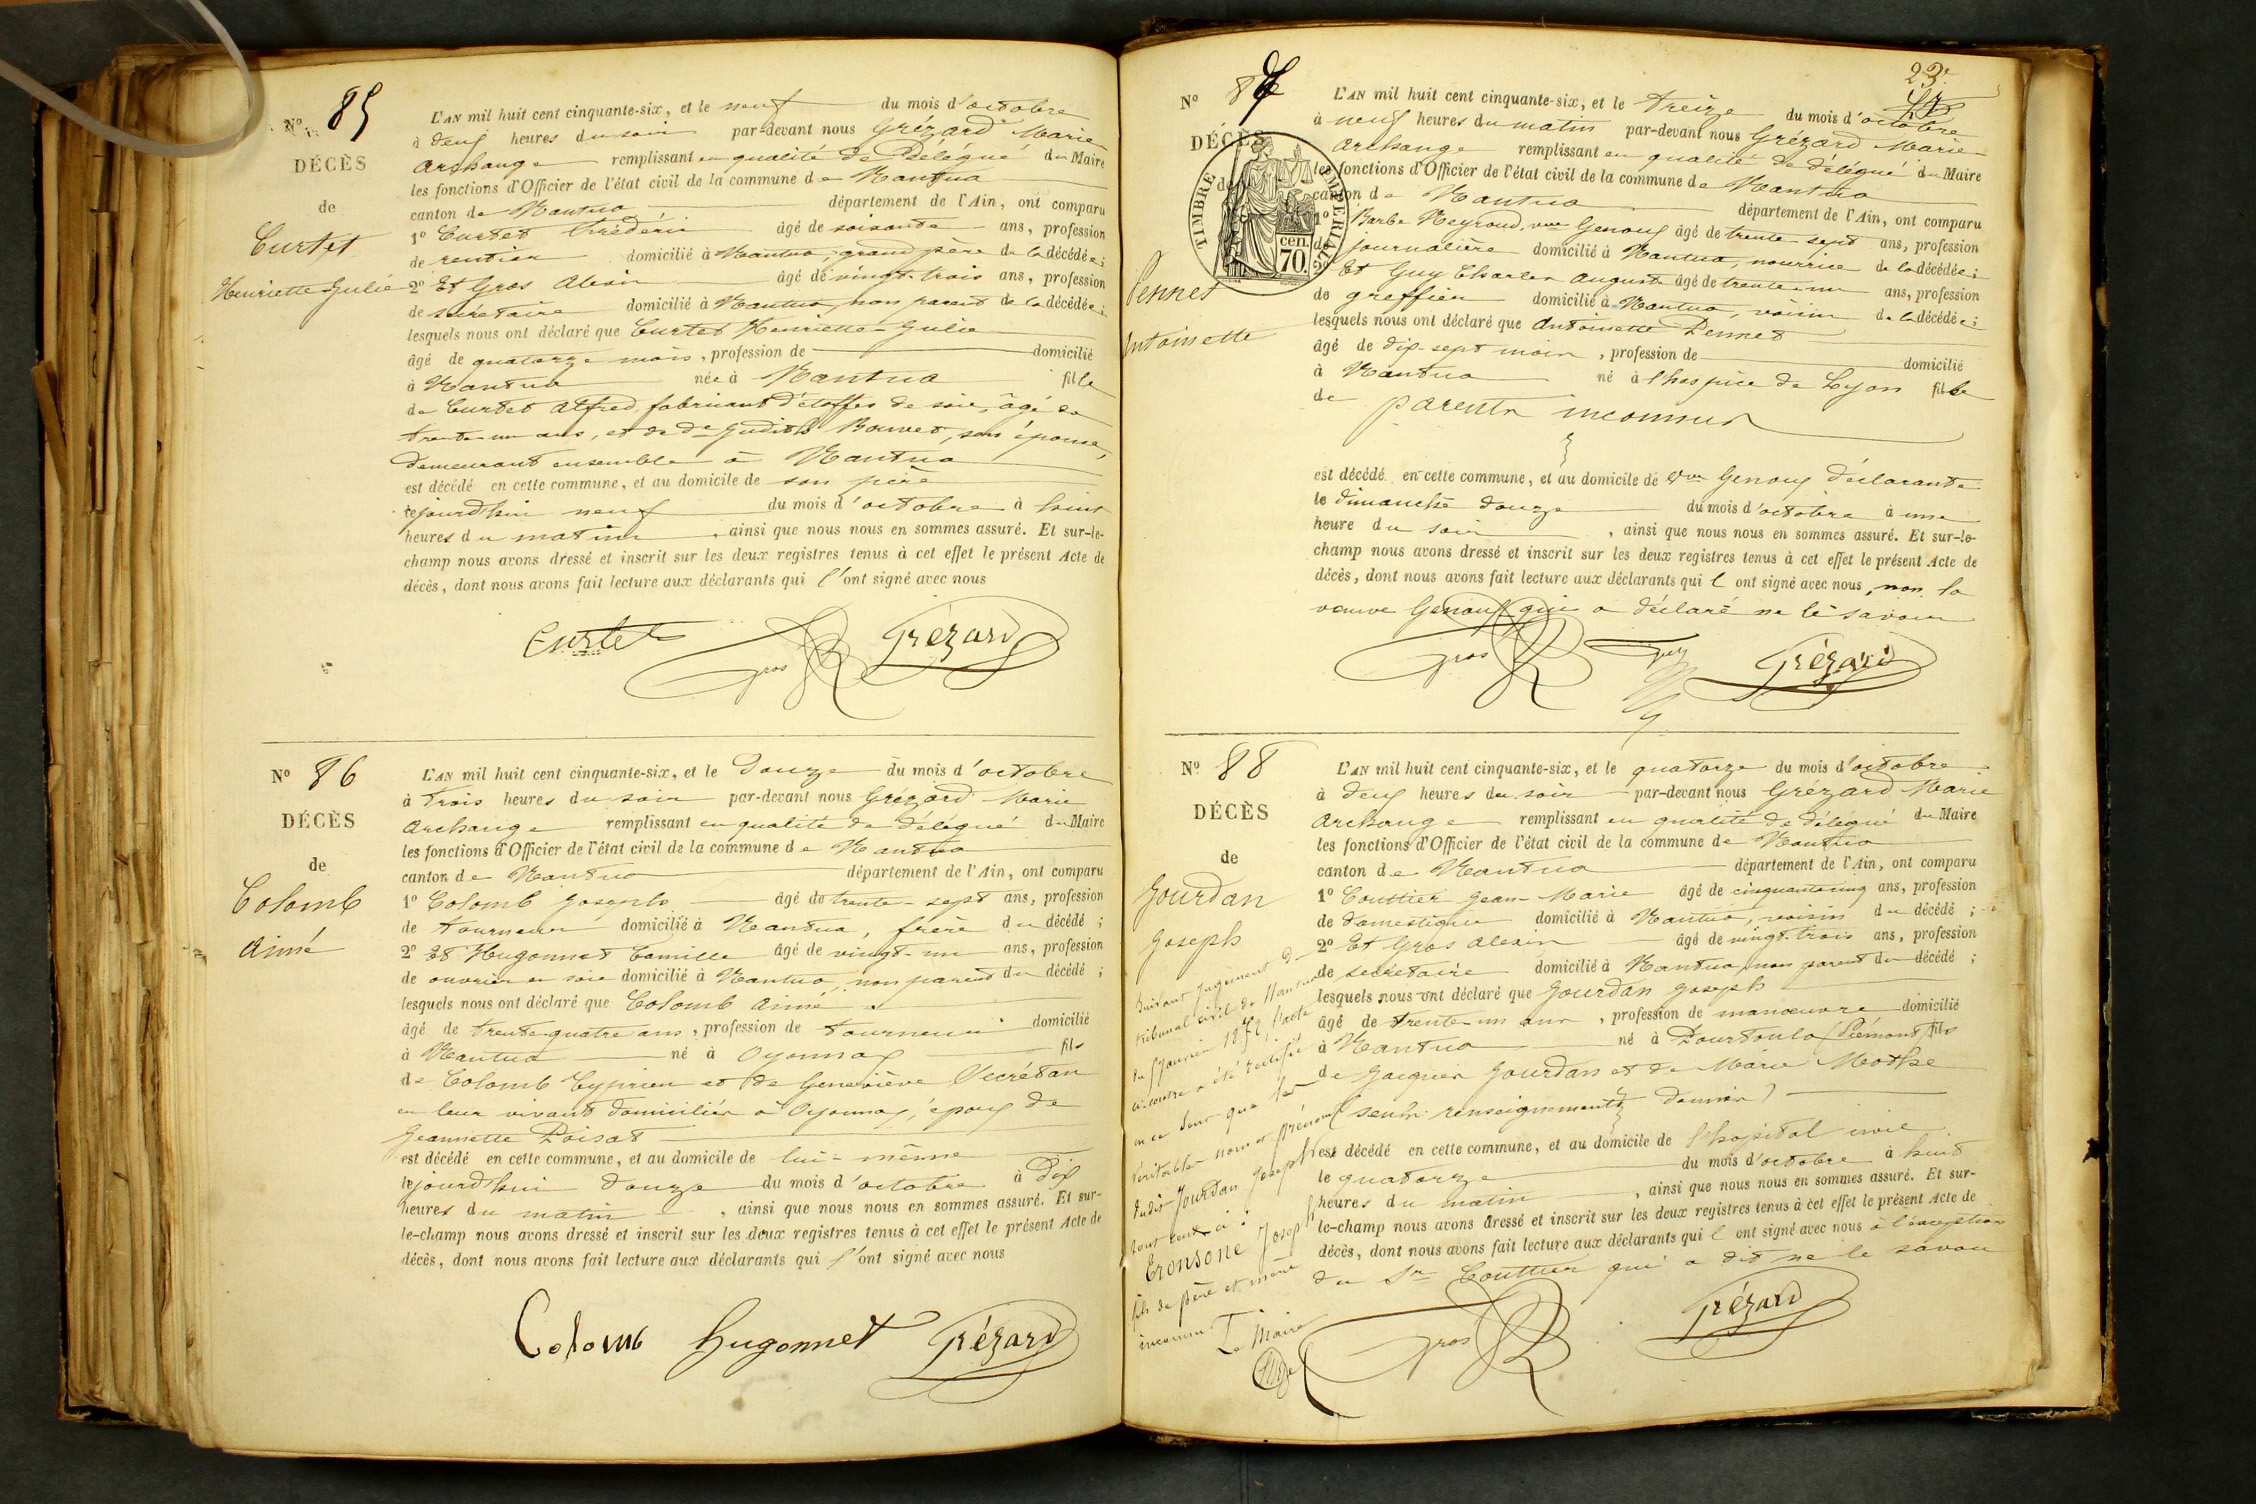 Nº 85
DÉCÈS
de
Curtet
Henriette Julie
L'AN mil huit cent cinquante-six, et le neuf du mois d'octobre
à deux heures du soir par-devant nous Grézard Marie
Archange remplissant en qualité de Délégué du Maire
les fonctions d'Officier de l'état civil de la commune de Nantua
canton de Nantua département de l'Ain, ont comparu
1º Curtet Frédéric âgé de soixante ans, profession
de rentier domicilié à Nantua, grand père de la décédée;
2º Et Gros Alexis âgé de vingt-trois ans, profession
de secrétaire domicilié à Nantua, non parent de la décédée;
lesquels nous ont déclaré que Curtet Henriette-Julie
âgé de quatorze mois, profession de domicilié
à Nantua née à Nantua fille
de Curtet Alfred, fabricant d'étoffes de soie, âgé de
trente-un ans, et de de Judith Bouvet, son épouse,
demeurant ensemble à Nantua
est décédé en cette commune, et au domicile de son père
cejourd'hui neuf du mois d'octobre à huit
heures du matin, ainsi que nous nous en sommes assuré. Et sur-le-
champ nous avons dressé et inscrit sur les deux registres tenus à cet effet le présent Acte de
décès, dont nous avons fait lecture aux déclarants qui l'ont signé avec nous
Curtet Gros Grézard
Nº 86
DÉCÈS
de
Colomb
Aimé
L'AN mil huit cent cinquante-six, et le Douze du mois d'octobre
à trois heures du soir par-devant nous Grézard Marie
Archange remplissant en qualité de délégué du Maire
les fonctions d'Officier de l'état civil de la commune de Nantua
canton de Nantua département de l'Ain, ont comparu
1º Colomb Joseph âgé de trente-sept ans, profession
de tourneur domicilié à Nantua, frère du décédé;
2º Et Hugonnet Camille âgé de vingt-un ans, profession
de ouvrier en soie domicilié à Nantua, non parent du décédé;
lesquels nous ont déclaré que Colomb Aimé
âgé de trente-quatre ans, profession de tourneur domicilié
à Nantua né à Oyonnax fils
de Colomb Cyprien et de Geneviève Secrétan
en leur vivant domiciliés à Oyonnax, époux de
Jeannette Poisat
est décédé en cette commune, et au domicile de lui-même
cejourd'hui douze du mois d'octobre à Dix
heures du matin, ainsi que nous nous en sommes assuré. Et sur-
le-champ nous avons dressé et inscrit sur les deux registres tenus à cet effet le présent Acte de
décès, dont nous avons fait lecture aux déclarants qui l'ont signé avec nous
Colomb hugonnet Grézard
23
Nº 87
DÉCÈS
de
TIMBRE IMPÉRIAL
70 cen.
Pennet
Antoinette
L'AN mil huit cent cinquante-six, et le treize du mois d'octobre
à neuf heures du matin par-devant nous Grézard Marie
Archange remplissant en qualité de délégué du Maire
les fonctions d'Officier de l'état civil de la commune de Nantua
canton de Nantua département de l'Ain, ont comparu
1º Barbe Neyroud, vve Genoux âgé de trente-sept ans, profession
de journalière domicilié à Nantua, nourrice de la décédée;
2º Et Guy Charles Auguste âgé de trente-un ans, profession
de greffier domicilié à Nantua, voisin de la décédée;
lesquels nous ont déclaré que Antoinette Pennet
âgé de dix-sept mois, profession de domicilié
à Nantua né à l'hospice de Lyon fille
de parents inconnus
est décédé en cette commune, et au domicile de vve Genoux déclarante
le dimanche douze du mois d'octobre à une
heure du soir, ainsi que nous nous en sommes assuré. Et sur-le-
champ nous avons dressé et inscrit sur les deux registres tenus à cet effet le présent Acte de
décès, dont nous avons fait lecture aux déclarants qui l'ont signé avec nous, non la
veuve Genoux qui a déclaré ne le savoir
Gros Guy Grézard
Nº 88
DÉCÈS
de
Jourdan
Joseph
Suivant jugement du
tribunal civil de Nantua
du janvier l'acte
ci-contre a été rectifié
en ce sens que les
véritables noms et prénoms
dudit Jourdan Joseph
sont ceux-ci:
Cronsone Joseph
fils de père et mère
inconnus
Le Maire
L'AN mil huit cent cinquante-six, et le quatorze du mois d'octobre
à deux heures du soir par-devant nous Grézard Marie
Archange remplissant en qualité de délégué du Maire
les fonctions d'Officier de l'état civil de la commune de Nantua
canton de Nantua département de l'Ain, ont comparu
1º Couttier Jean-Marie âgé de cinquante cinq ans, profession
de domestique domicilié à Nantua, voisin du décédé;
2º Et Gros Alexis âgé de vingt-trois ans, profession
de secrétaire domicilié à Nantua, non parent du décédé;
lesquels nous ont déclaré que Jourdan Joseph
âgé de trente-un ans, profession de manœuvre domicilié
à Nantua né à Pourtoula (Piémont) fils
de Jacques Jourdan et de Marie Mothe
(seuls renseignements donnés)
est décédé en cette commune, et au domicile de l'hôpital civil
le quatorze du mois d'octobre à huit
heures du matin, ainsi que nous nous en sommes assuré. Et sur-
le-champ nous avons dressé et inscrit sur les deux registres tenus à cet effet le présent Acte de
décès, dont nous avons fait lecture aux déclarants qui l'ont signé avec nous à l'exception
du Sr Couttier qui a dit ne le savoir
Gros Grézard